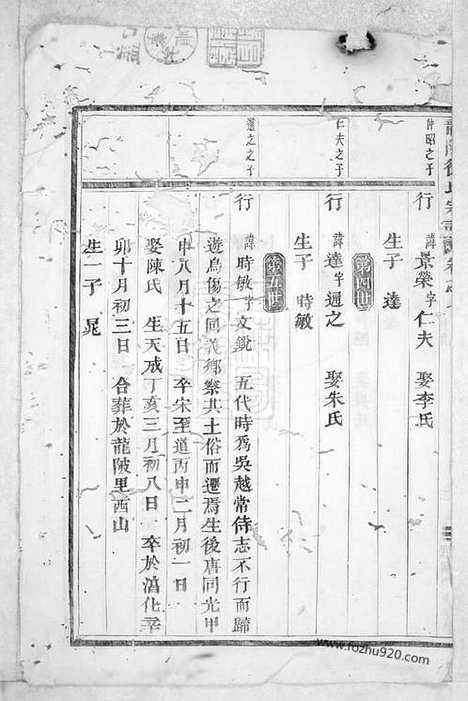 仲昭之子
行 諱景榮字仁夫 娶李氏
生子 達
第四世
仁夫之子
行 諱達字遁之 娶朱氏
生子 時敏
第五世
遁之之子
行 諱時敏字文銳 五代時爲吳越常侍志不行而歸
遊烏傷之同義鄉察其土俗而遷焉生後唐同光甲
申八月十五日 卒宋至道丙申二月初一日
娶陳氏 生天成丁亥三月初八日 卒於淳化辛
卯十月初三日 合葬於龍陂里西山
生一子 晃
www.fozhu920.com